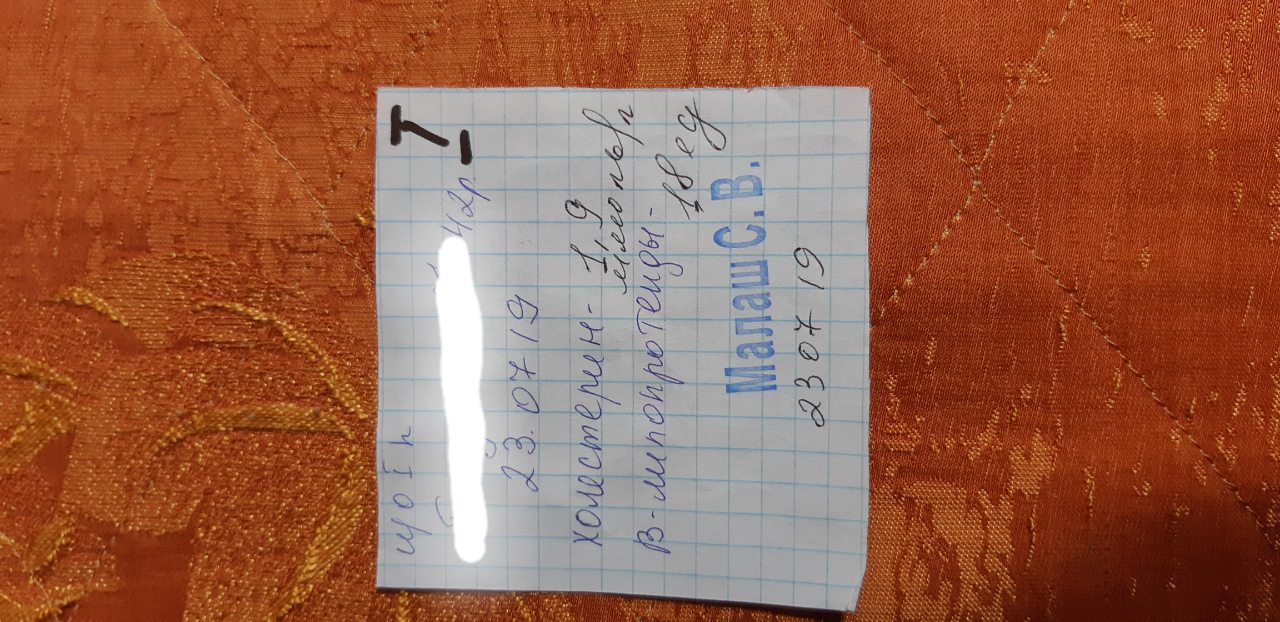 Т
42р.
23.07 19
холестерин - 1,9
ммоль/л
В-липопротеиды -
18 ед
Малаш С.В.
23 07 19